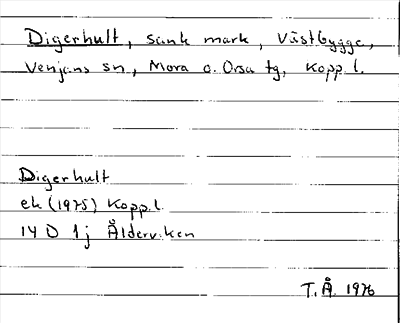 Digerhult, sank mark, Västbygge,
Venjans sn, Mora o. Orsa tg, Kopp. l.
Digerhult
ek (1975) Kopp. l.
14 D 1j Ålderviken
T.Å. 1976